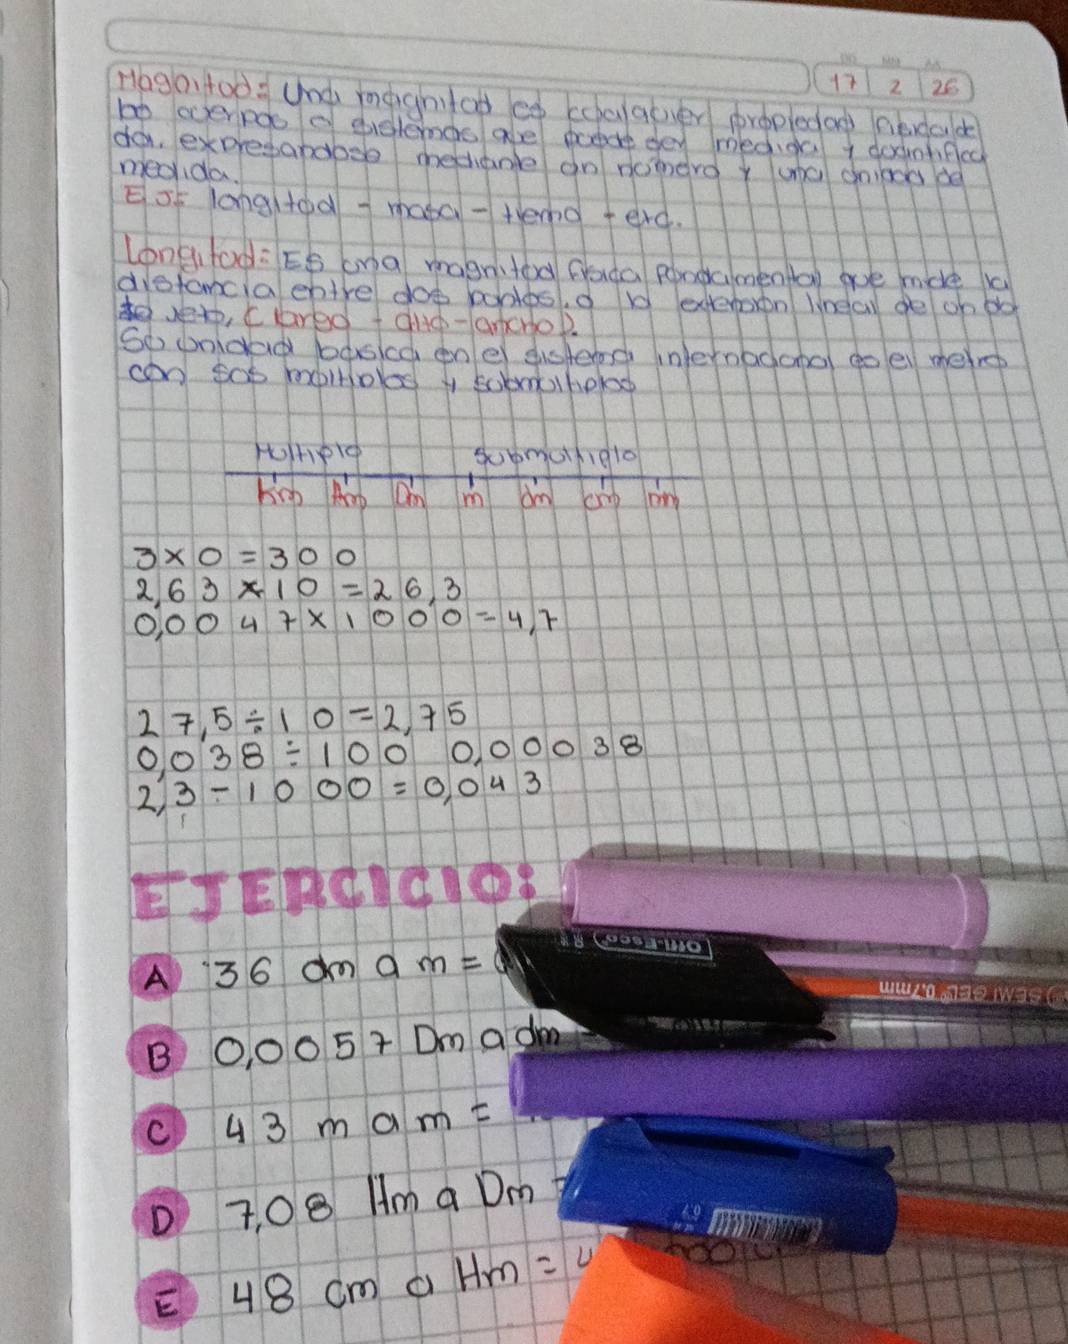 17 2 26
Magnitod: Una magnitod es coalquier propiedad
medida y
da. expresandose mechante on nomero y una onidad de
medida.
EJ: longitod - masa - tiemo - etc.
Longitod: Es una magnitod que mide la
distancia entre dos pontos, o la extension lineal de on ob
jeto, (Largo - alto - ancho).
So onidad basica en el sistema internacional es el metro
con sos moltiplos y submoltiplos
Moltiplo submoltiplo
Km Hm Dm m dm cm mm
3x0=300
2,63x10=26,3
0,0047x1000=4,7
27,5÷10=2,75
0,038÷100 0,00038
2,3÷1000=0,043
EJERCICIO:
A 36 dm a m=
B 0,0057 Dm a dm
C 43 m a m =
D 7,08 Hm a Dm
E 48 cm a Hm = 4
Offi-Esco
SEMI GEL 0.7mm
0.7